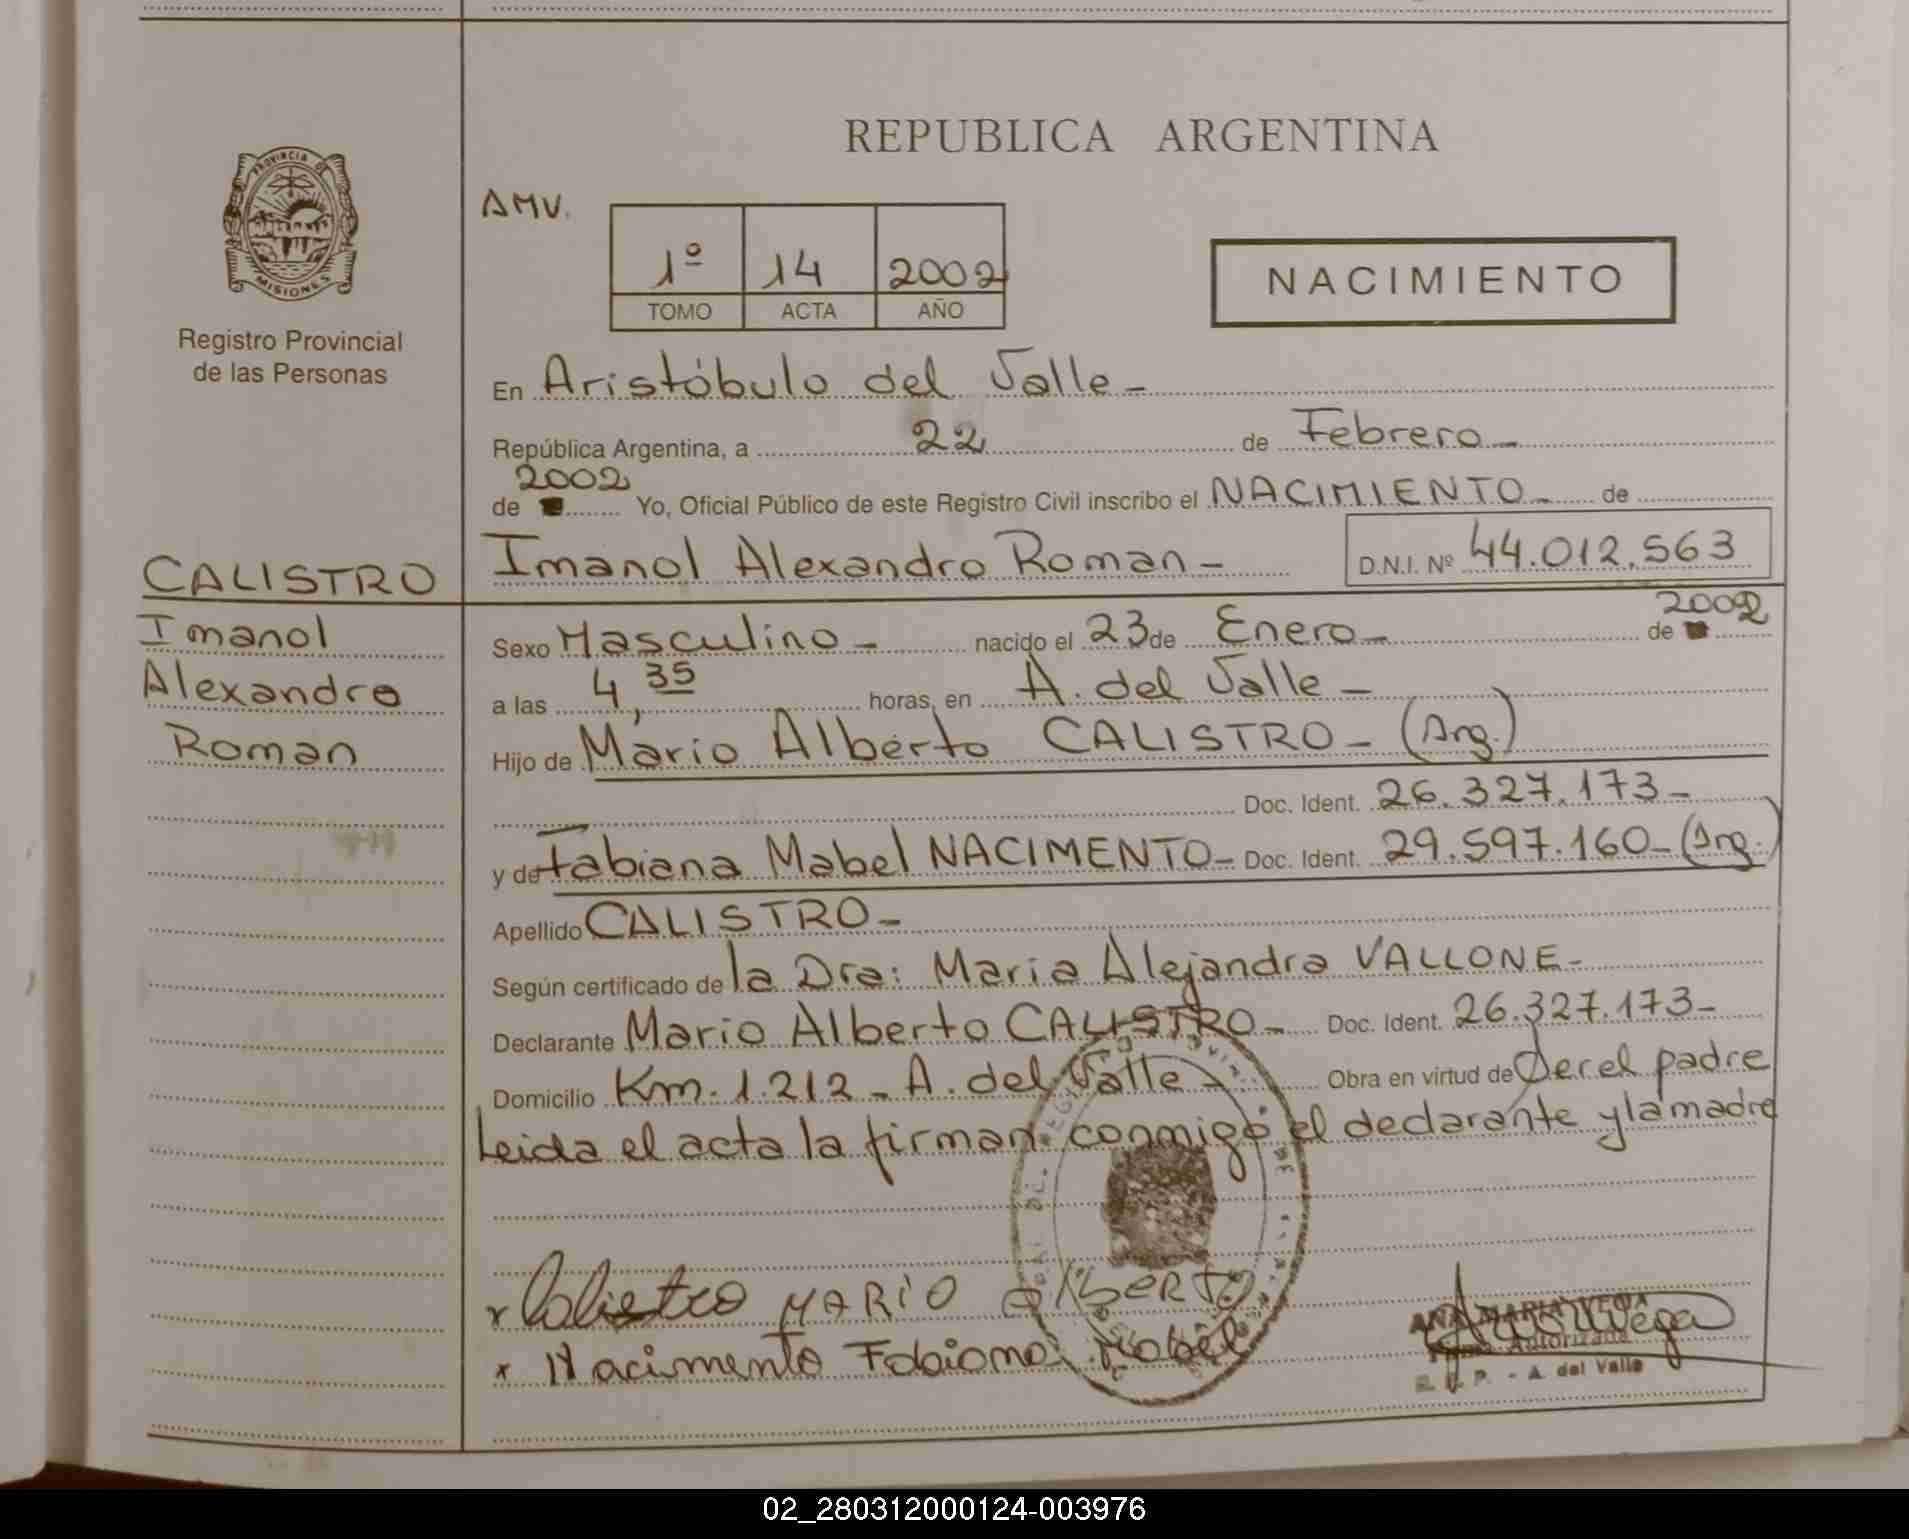 REPUBLICA ARGENTINA
PROVINCIA DE MISIONES
Registro Provincial
de las Personas
AMV.
1º 14 2002
TOMO ACTA AÑO
NACIMIENTO
En Aristóbulo del Valle -
República Argentina, a 22 de Febrero -
2002
de Yo, Oficial Público de este Registro Civil inscribo el NACIMIENTO - de
CALISTRO
Imanol
Alexandro
Roman
Imanol Alexandro Roman - D.N.I. Nº 44.012.563
Sexo Masculino - nacido el 23 de Enero - de 2002
a las 4,35 horas, en A. del Valle -
Hijo de Mario Alberto CALISTRO - (Arg.)
Doc. Ident. 26.327.173 -
y de Fabiana Mabel NACIMENTO - Doc. Ident. 29.597.160 - (Arg.)
Apellido CALISTRO -
Según certificado de la Dra: Maria Alejandra VALLONE -
Declarante Mario Alberto CALISTRO - Doc. Ident. 26.327.173 -
Domicilio Km. 1.212 - A. del Valle - Obra en virtud de Ser el padre
Leida el acta la firman conmigo el declarante y la madre
x Calistro MARIO AlBERTO
x Nacimento Fabiana Mabel
ANA MARIA VEGA
Autorizada
R. P. - A. del Valle
02_280312000124-003976